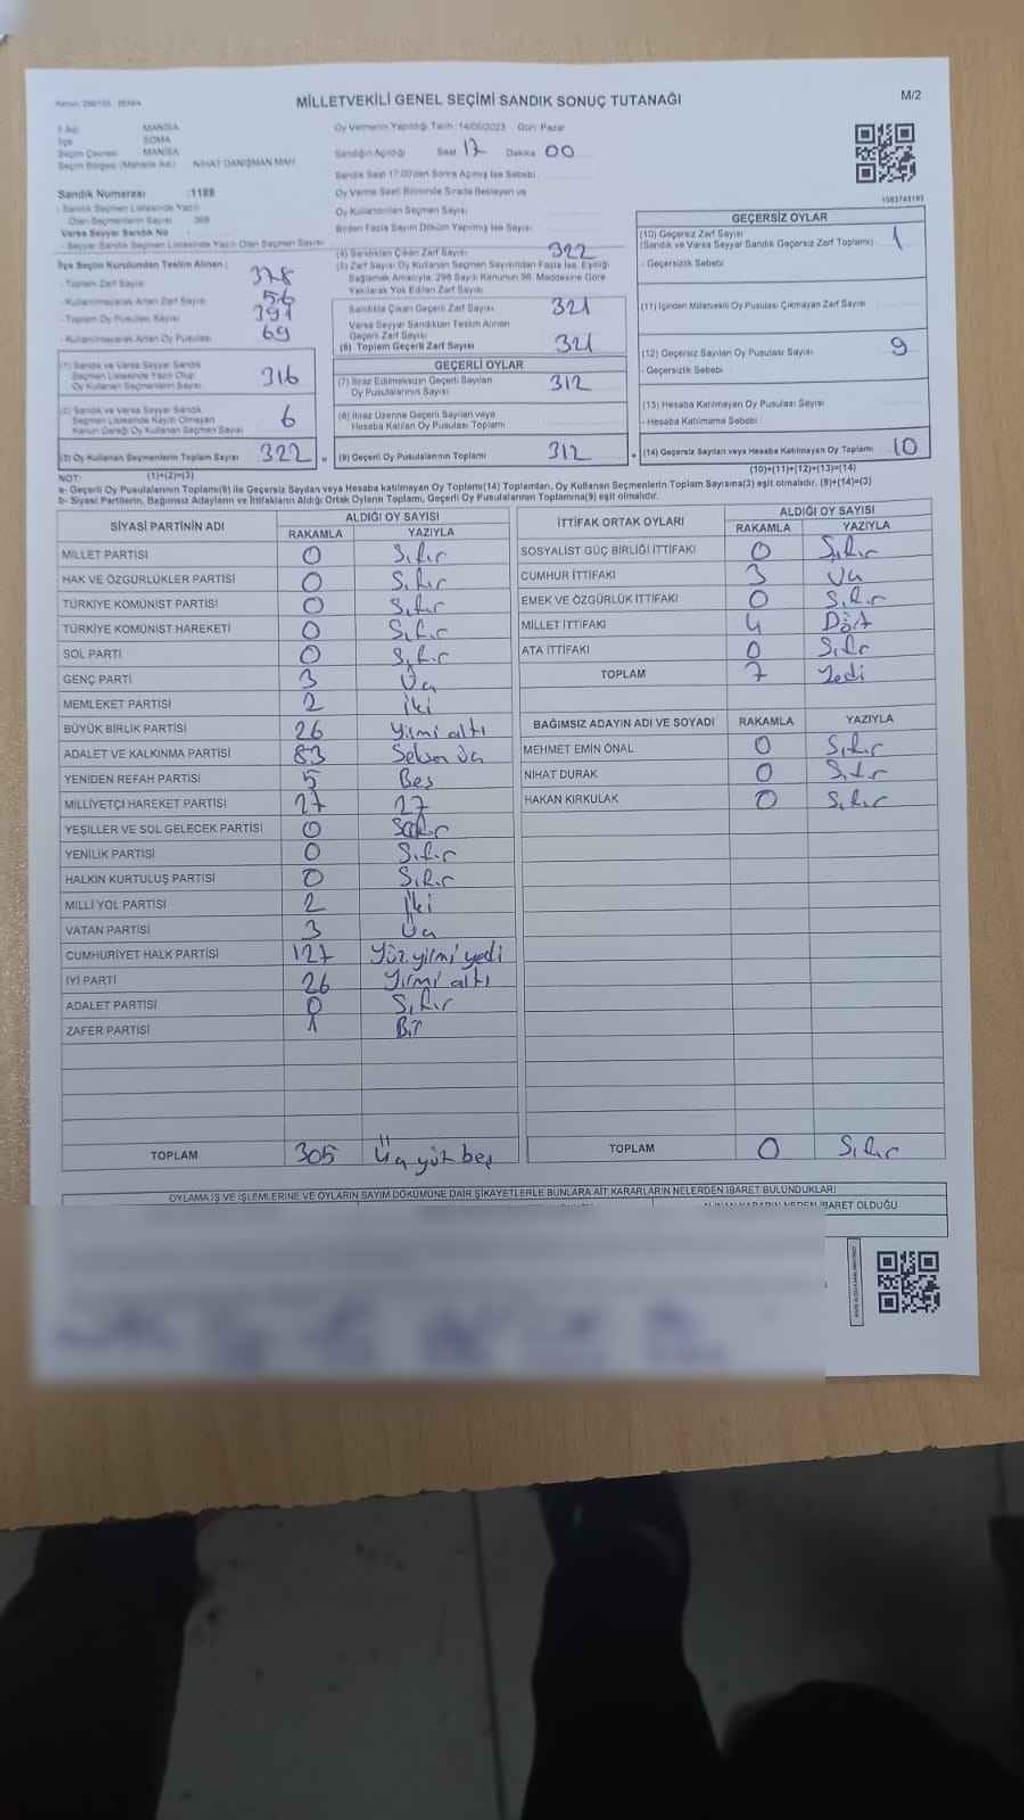 MİLLETVEKİLİ GENEL SEÇİMİ SANDIK SONUÇ TUTANAĞI
M/2
İl Adı MANİSA
İlçe SOMA
Seçim Çevresi MANİSA
Seçim Bölgesi (Mahalle Adı) NİHAT DANIŞMAN MAH
Oy Vermenin Yapıldığı Tarih :14/05/2023 Gün: Pazar
Sandığın Açıldığı Saat 17 Dakika 00
Sandık Saat 17:00'den Sonra Açılmış İse Sebebi
Oy Verme Saati Bitiminde Sırada Bekleyen ve
Oy Kullandırılan Seçmen Sayısı
Birden Fazla Sayım Döküm Yapılmış İse Sayısı
Sandık Numarası :1188
Sandık Seçmen Listesinde Yazılı
Olan Seçmenlerin Sayısı 368
Varsa Seyyar Sandık No
- Seyyar Sandık Seçmen Listesinde Yazılı Olan Seçmen Sayısı
İlçe Seçim Kurulundan Teslim Alınan :
- Toplam Zarf Sayısı 378
- Kullanılmayarak Artan Zarf Sayısı 56
- Toplam Oy Pusulası Sayısı 391
- Kullanılmayarak Artan Oy Pusulası 69
(1) Sandık ve Varsa Seyyar Sandık
Seçmen Listesinde Yazılı Olup
Oy Kullanan Seçmenlerin Sayısı 316
(2) Sandık ve Varsa Seyyar Sandık
Seçmen Listesinde Kayıtlı Olmayan
Kanun Gereği Oy Kullanan Seçmen Sayısı 6
(3) Oy Kullanan Seçmenlerin Toplam Sayısı 322
(1)+(2)=(3)
(4) Sandıktan Çıkan Zarf Sayısı 322
(5) Zarf Sayısı Oy Kullanan Seçmen Sayısından Fazla İse, Eşitliği
Sağlamak Amacıyla, 298 Sayılı Kanunun 98. Maddesine Göre
Yakılarak Yok Edilen Zarf Sayısı
Sandıkta Çıkan Geçerli Zarf Sayısı 321
Varsa Seyyar Sandıktan Teslim Alınan
Geçerli Zarf Sayısı
(6) Toplam Geçerli Zarf Sayısı 321
GEÇERLİ OYLAR
(7) İtiraz Edilmeksizin Geçerli Sayılan
Oy Pusulalarının Sayısı 312
(8) İtiraz Üzerine Geçerli Sayılan veya
Hesaba Katılan Oy Pusulası Toplamı
(9) Geçerli Oy Pusulalarının Toplamı 312
1583743193
GEÇERSİZ OYLAR
(10) Geçersiz Zarf Sayısı 1
(Sandık ve Varsa Seyyar Sandık Geçersiz Zarf Toplamı)
- Geçersizlik Sebebi
(11) İçinden Milletvekili Oy Pusulası Çıkmayan Zarf Sayısı
(12) Geçersiz Sayılan Oy Pusulası Sayısı 9
- Geçersizlik Sebebi
(13) Hesaba Katılmayan Oy Pusulası Sayısı
- Hesaba Katılmama Sebebi
(14) Geçersiz Sayılan veya Hesaba Katılmayan Oy Toplamı 10
(10)+(11)+(12)+(13)=(14)
NOT:
a- Geçerli Oy Pusulalarının Toplamı(9) ile Geçersiz Sayılan veya Hesaba katılmayan Oy Toplamı(14) Toplamları, Oy Kullanan Seçmenlerin Toplam Sayısına(3) eşit olmalıdır. (9)+(14)=(3)
b- Siyasi Partilerin, Bağımsız Adayların ve İttifakların Aldığı Ortak Oyların Toplamı, Geçerli Oy Pusulalarının Toplamına(9) eşit olmalıdır.
SİYASİ PARTİNİN ADI ALDIĞI OY SAYISI
RAKAMLA YAZIYLA
MİLLET PARTİSİ 0 Sıfır
HAK VE ÖZGÜRLÜKLER PARTİSİ 0 Sıfır
TÜRKİYE KOMÜNİST PARTİSİ 0 Sıfır
TÜRKİYE KOMÜNİST HAREKETİ 0 Sıfır
SOL PARTİ 0 Sıfır
GENÇ PARTİ 3 Üç
MEMLEKET PARTİSİ 2 İki
BÜYÜK BİRLİK PARTİSİ 26 Yirmi altı
ADALET VE KALKINMA PARTİSİ 83 Seksen üç
YENİDEN REFAH PARTİSİ 5 Beş
MİLLİYETÇİ HAREKET PARTİSİ 27 27
YEŞİLLER VE SOL GELECEK PARTİSİ 0 Sıfır
YENİLİK PARTİSİ 0 Sıfır
HALKIN KURTULUŞ PARTİSİ 0 Sıfır
MİLLİ YOL PARTİSİ 2 İki
VATAN PARTİSİ 3 Üç
CUMHURİYET HALK PARTİSİ 127 Yüz yirmi yedi
İYİ PARTİ 26 Yirmi altı
ADALET PARTİSİ 0 Sıfır
ZAFER PARTİSİ 1 Bir
TOPLAM 305 Üç yüz beş
İTTİFAK ORTAK OYLARI ALDIĞI OY SAYISI
RAKAMLA YAZIYLA
SOSYALİST GÜÇ BİRLİĞİ İTTİFAKI 0 Sıfır
CUMHUR İTTİFAKI 3 Üç
EMEK VE ÖZGÜRLÜK İTTİFAKI 0 Sıfır
MİLLET İTTİFAKI 4 Dört
ATA İTTİFAKI 0 Sıfır
TOPLAM 7 Yedi
BAĞIMSIZ ADAYIN ADI VE SOYADI RAKAMLA YAZIYLA
MEHMET EMİN ÖNAL 0 Sıfır
NİHAT DURAK 0 Sıfır
HAKAN KIRKULAK 0 Sıfır
TOPLAM 0 Sıfır
OYLAMA İŞ VE İŞLEMLERİNE VE OYLARIN SAYIM DÖKÜMÜNE DAİR ŞİKAYETLERLE BUNLARA AİT KARARLARIN NELERDEN İBARET BULUNDUKLARI
İBARET OLDUĞU